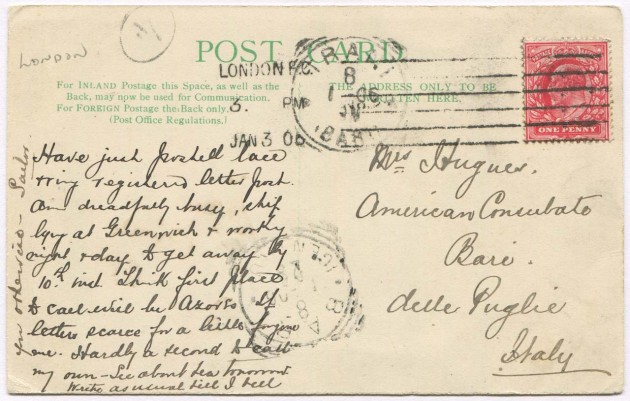 LONDON
POST CARD
LONDON F.C.
3. PM
JAN 3 06
For INLAND Postage this Space, as well as the
Back, may now be used for Communication.
For FOREIGN Postage the Back only.
(Post Office Regulations.)
THE ADDRESS ONLY TO BE
WRITTEN HERE.
ONE PENNY
BARI
8
Have just posted lace
& ring registered letter post
Am dreadfully busy, ship
lying at Greenwich & working
night & day to get away by
10th inst. Think first place
to call will be Azores. If
letters scarce for a little forgive
me. Hardly a second to call
my own - See about tea tomorrow
Write as usual till I tell
you otherwise - Sailor
Mrs Hughes.
American Consulate
Bari.
delle Puglie
Italy